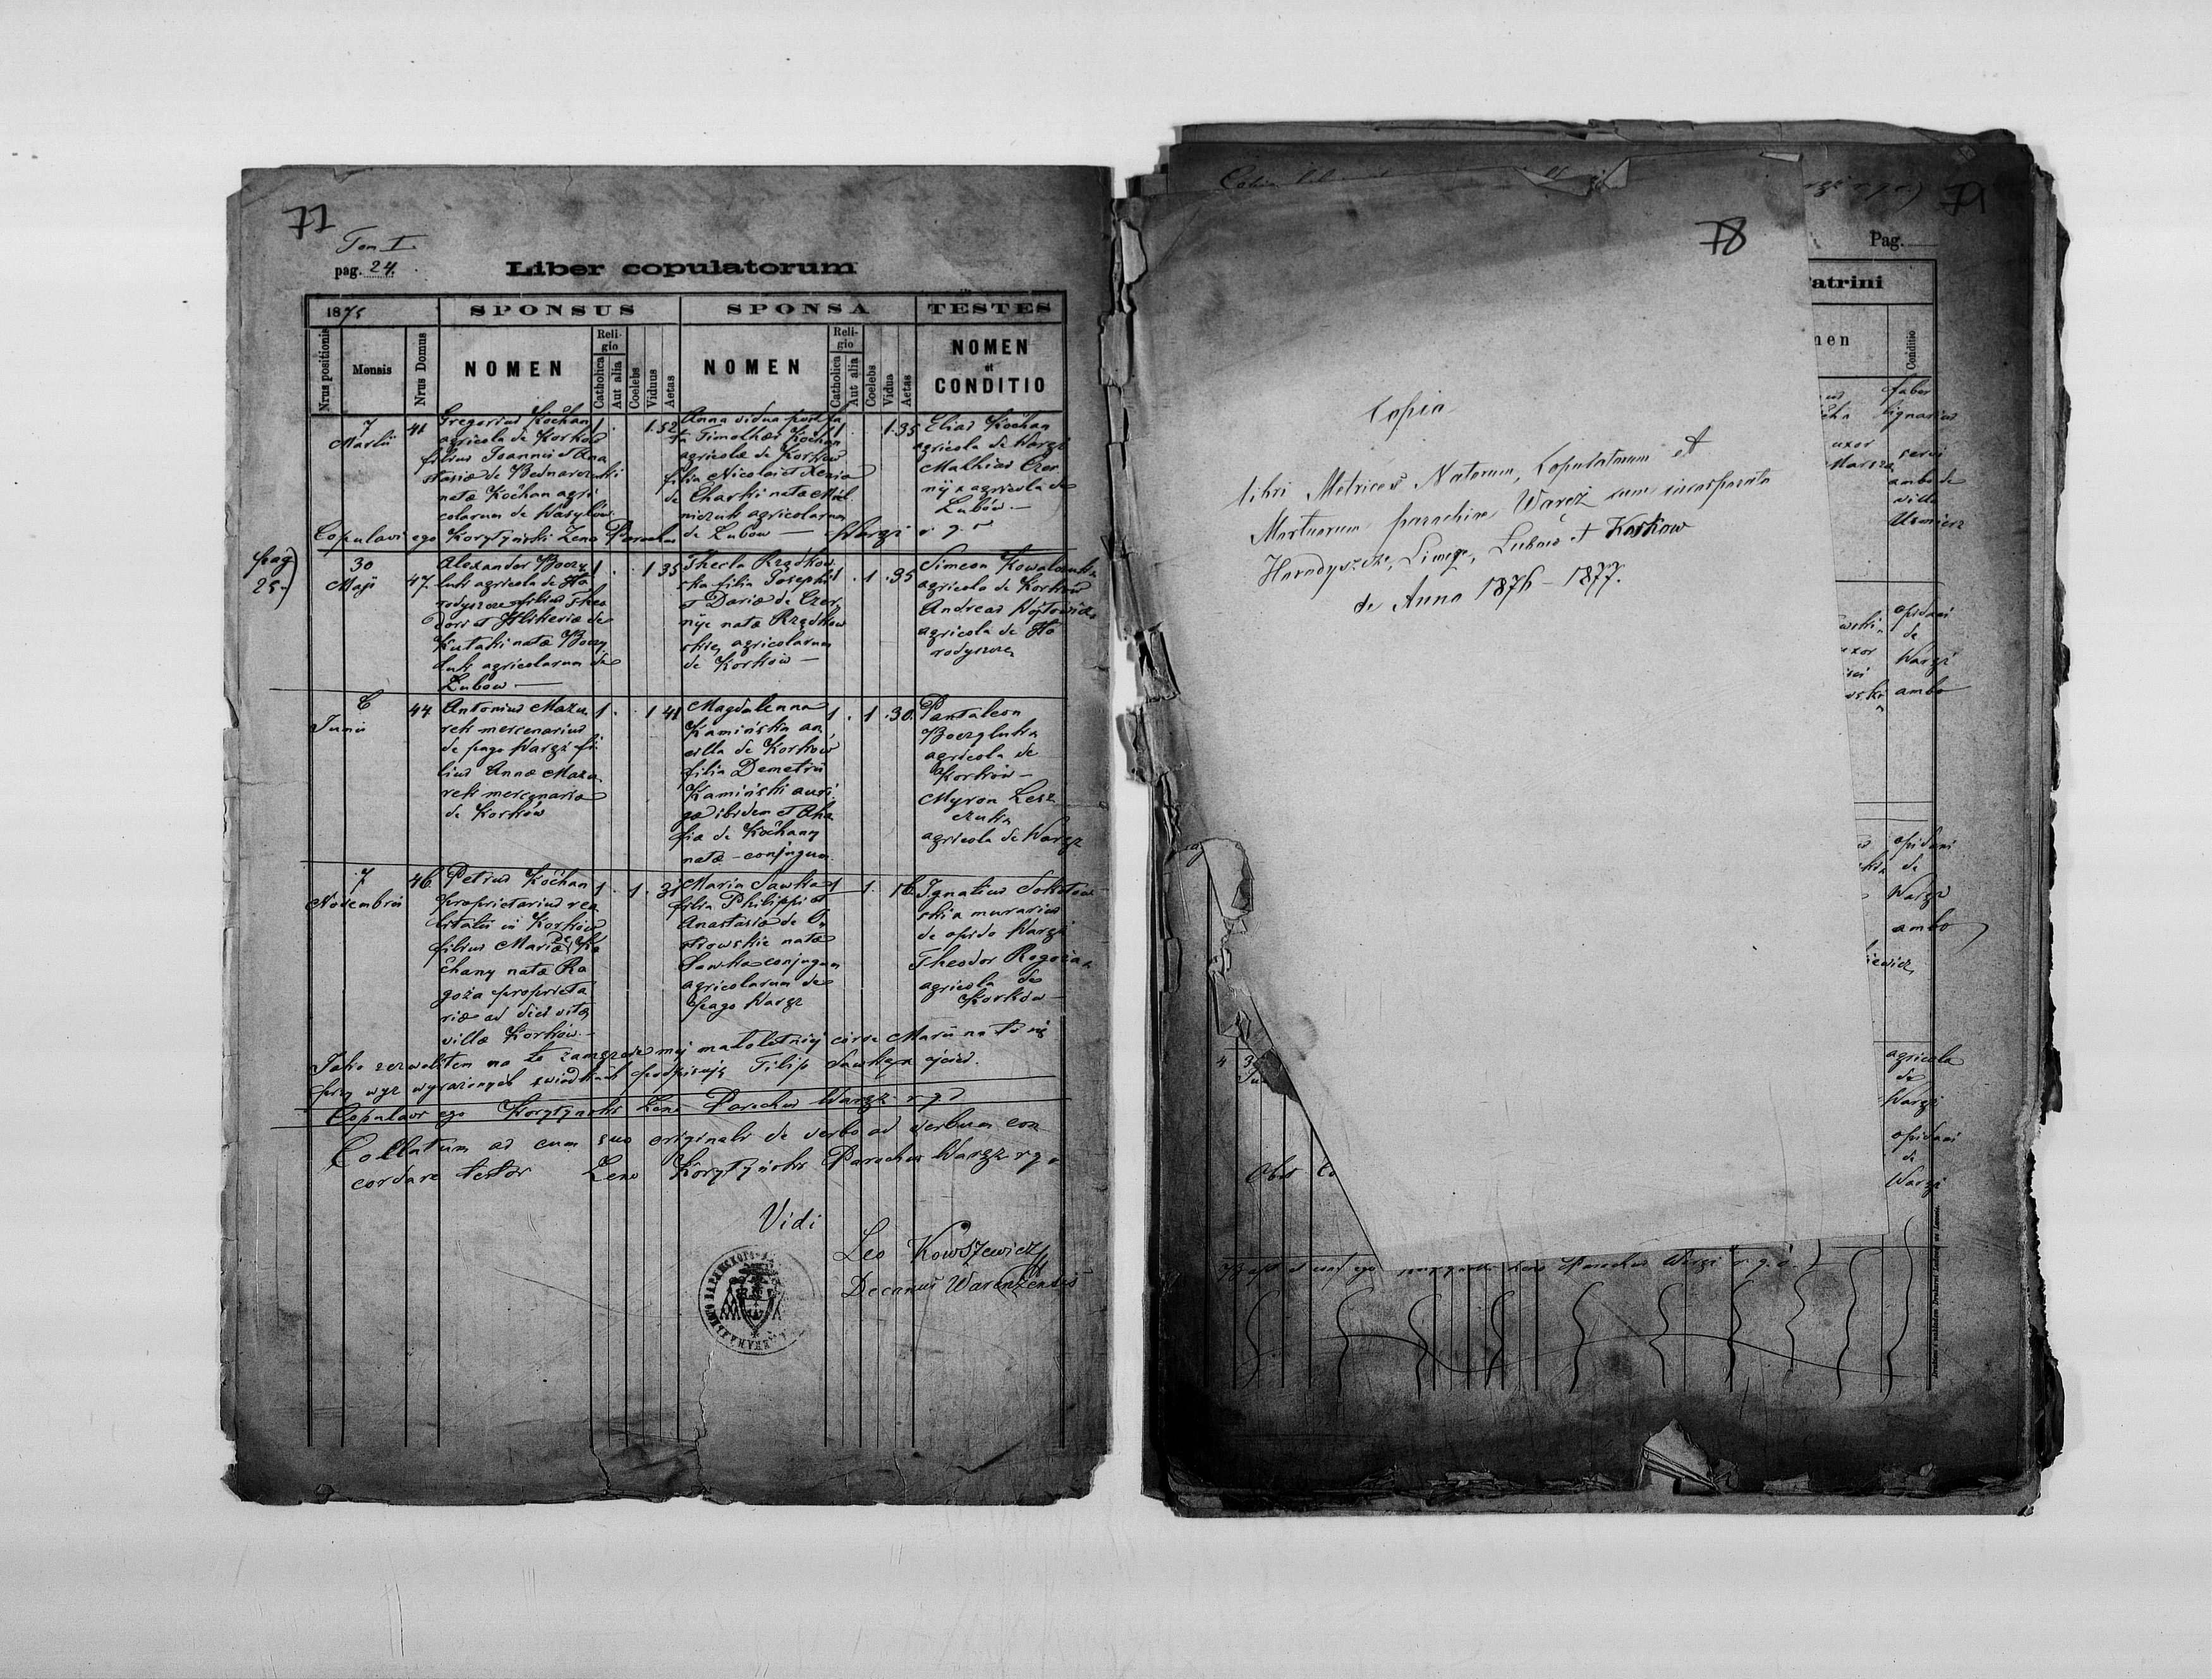 77
Tom I.
pag. 24.
Liber copulatorum
1875
SPONSUS
SPONSA
TESTES
Nrus positionis
Mensis
Nrus Domus
NOMEN
Religio
Catholica
Aut alia
Coelebs
Viduus
Aetas
NOMEN
Religio
Catholica
Aut alia
Coelebs
Vidua
Aetas
NOMEN
et
CONDITIO
7
Martii
41
Gregorius Kočhan
agricola de Korków
filius Joannis et Ana
stasiæ de Bednarczuki
natæ Kočhan agri
colarum de Wasylów
1. 1. 52
Anna vidua post fa
tа Timothæi Kočhan
agricolæ de Korków
filia Nicolai et Xenia
de Charki natæ
niczuk agricolarum
de Lubow —
1 1. 35
Elias Kočhan
agricola de Waręż
Mathias Czer
nij x agricola de
Lubów. —
Copulavi ego Korytyński Zeno Parochus Waręż r. g. r
pag
25.)
30
Maji
47.
Alexander Boczy
luk agricola de Ho
rodyszcze filius Theo
dori et Glikeriæ de
Kutaki natæ Boczy
luk agricolarum de
Lubow —
1. 1 35
Thecla Rządkow
ska filia Josephi
et Dariæ de Czer
nije natæ Rządkow
skie, agricolarum
de Korków —
1 . 1 .35
Simeon Kowalczuk x
agricola de Korków
Andreas Wojtowicz x
agricola de Ho
rodyszcze
6
Junii
44
Antonius Mazu
rek mercenarius
de pago Waręż fi
lius Annæ Mazu
rek mercenaria
de Korków
1. 1 41
Magdalenna
Kamińska an
cilla de Korków
filia Demetrii
Kamiński auri
gæ ibidem et Aha
fiæ de Kočhany
natæ - conjugum
1 . 1 .30.
Pantaleon
Boczyluk x
agricola de
Korków —
Myron Lesz
czuk x
agricola de Waręż
7
Novembris
46
Petrus Kočhan
proprietarius rea
litatis in Korków
filius Mariæ de Ko
čhany natæ Ro
goża proprieta
riæ ad dies vitæ
villæ Korków. —
1. 1. 31
Maria Sawka
filia Philippi et
Anastasiæ de O
strowskie natæ
Sawka conjugum
agricolarum de
pago Waręż
1 1. 16.
Ignatius Sokołow
ski x murarius
de opido Waręż
Theodor Rogoża x
agricola de
Korków —
Jako zezwoliłem na to zamęzcie mej małoletniej córce Marii na to się
przy wyż wyrażonych świadkach podpisuję Filip Sawka x ojciec.
Copulavi ego Korytyński Zeno Parochus Waręż r. g.
Collatum ad cum suo originali de verbo ad verbum con
cordare testor Zeno Korytyński Parochus Waręż r g
Vidi
Leo Kowszewicz
Decanus Warenżensis
78
Copia
libri Metrices Natorum, Copulatorum et
Mortuorum parochiæ Waręż cum incorporata
Horodyszcze, Liwcze, Lubow et Korkow
de Anno 1876 – 1877.
Pag.
Patrini
Conditio
faber
lignarius
uxor
servi
ambo de
villa
Uśmierz
opidani
de
Waręż
uxor
ambo
opidani
de
Waręż
ambo
agricola
de
Waręż
opidani
de
Waręż
4
Parochus Waręż r. g.